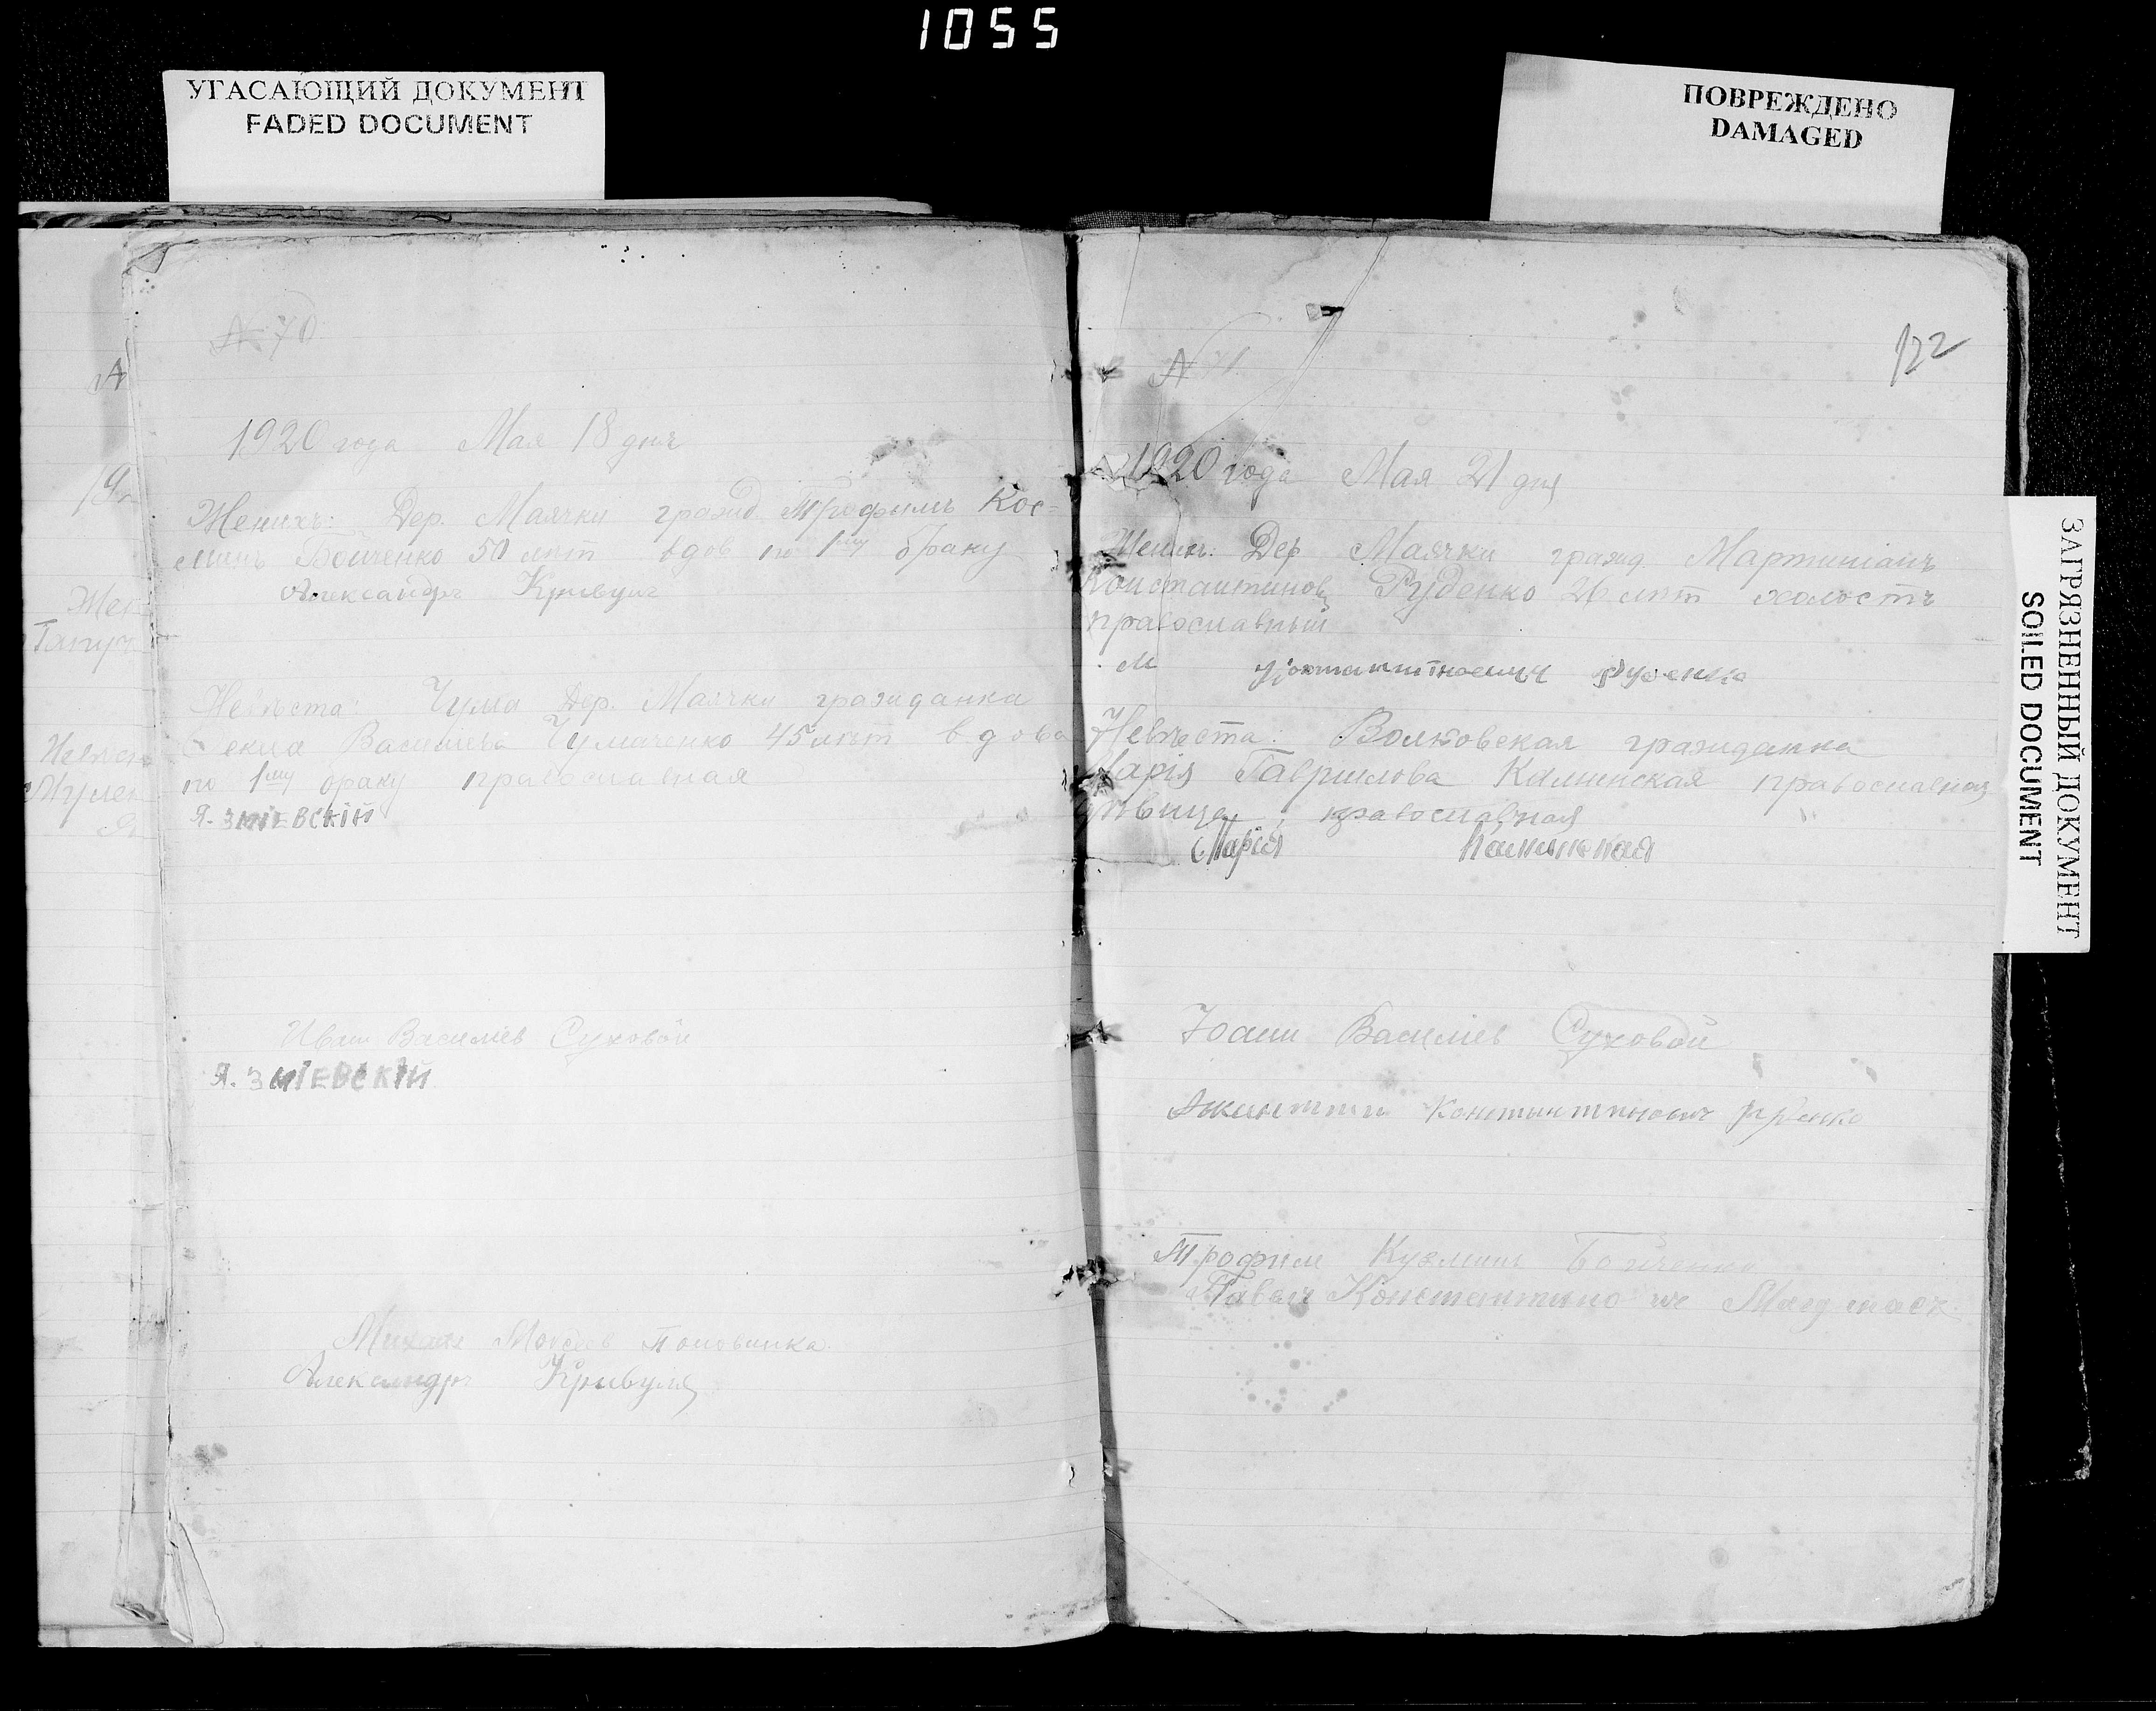 1055
УГАСАЮЩИЙ ДОКУМЕНТ
FADED DOCUMENT
ПОВРЕЖДЕНО
DAMAGED
ЗАГРЯЗНЕННЫЙ ДОКУМЕНТ
SOILED DOCUMENT
№ 70
1920 года Мая 18 дня
Женихъ: Дер. Маячки гражд. Трофимъ Кос=
минъ Бойченко 50 лѣт вдов по 1му браку
Александръ Кривуля
Невѣста: Дер. Маячки гражданка
Васильева Чумаченко 45 лѣт вдова
по 1му браку православная
Я. ЗМІЕВСКІЙ
Иван Василіев Суховой
Я. ЗМІЕВСКІЙ
Моисеев Половинка
Александръ Кривуля
122
№ 71
1920 года Мая 21 дня
Женихъ: Дер Маячки гражд. Мартиніанъ
Константинов Руденко 26 лѣт холостъ
православный
М Руденко
Невѣста: Волковская гражданка
Марія Гаврилова Калинская православная
дѣвица, православная
Марія Калинская
Іоанн Василіев Суховой
Константинович
Трофим Кузмич Бойченко
Павел